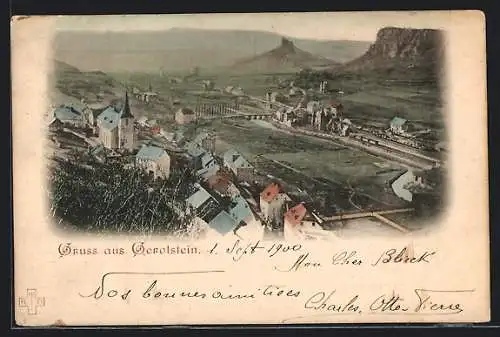 Gruss aus Gerolstein. 1. Sept 1900
Mon Cher
Vos bonnes amitiés Charles, Otto